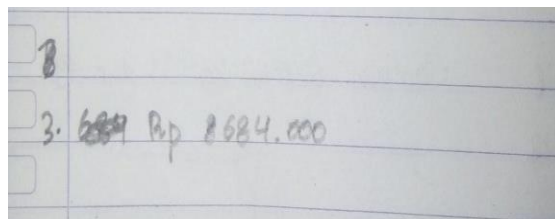 3. Rp 8684.000